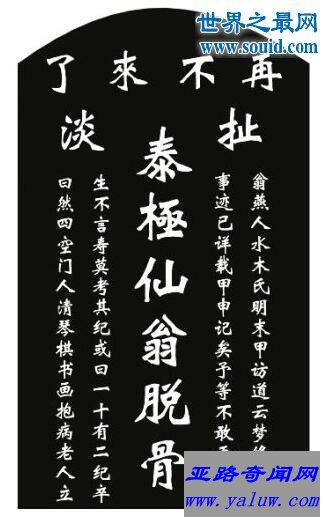 世界之最网
www.souid.com
再不來了
扯淡
翁燕人水木氏明末甲访道云梦
事迹已详载甲申记矣予等不敢
泰極仙翁脱骨
生不言寿莫考其纪或曰一十有二纪卒
曰然四空门人清琴棋书画抱病老人立
亚路奇闻网
www.yaluw.com